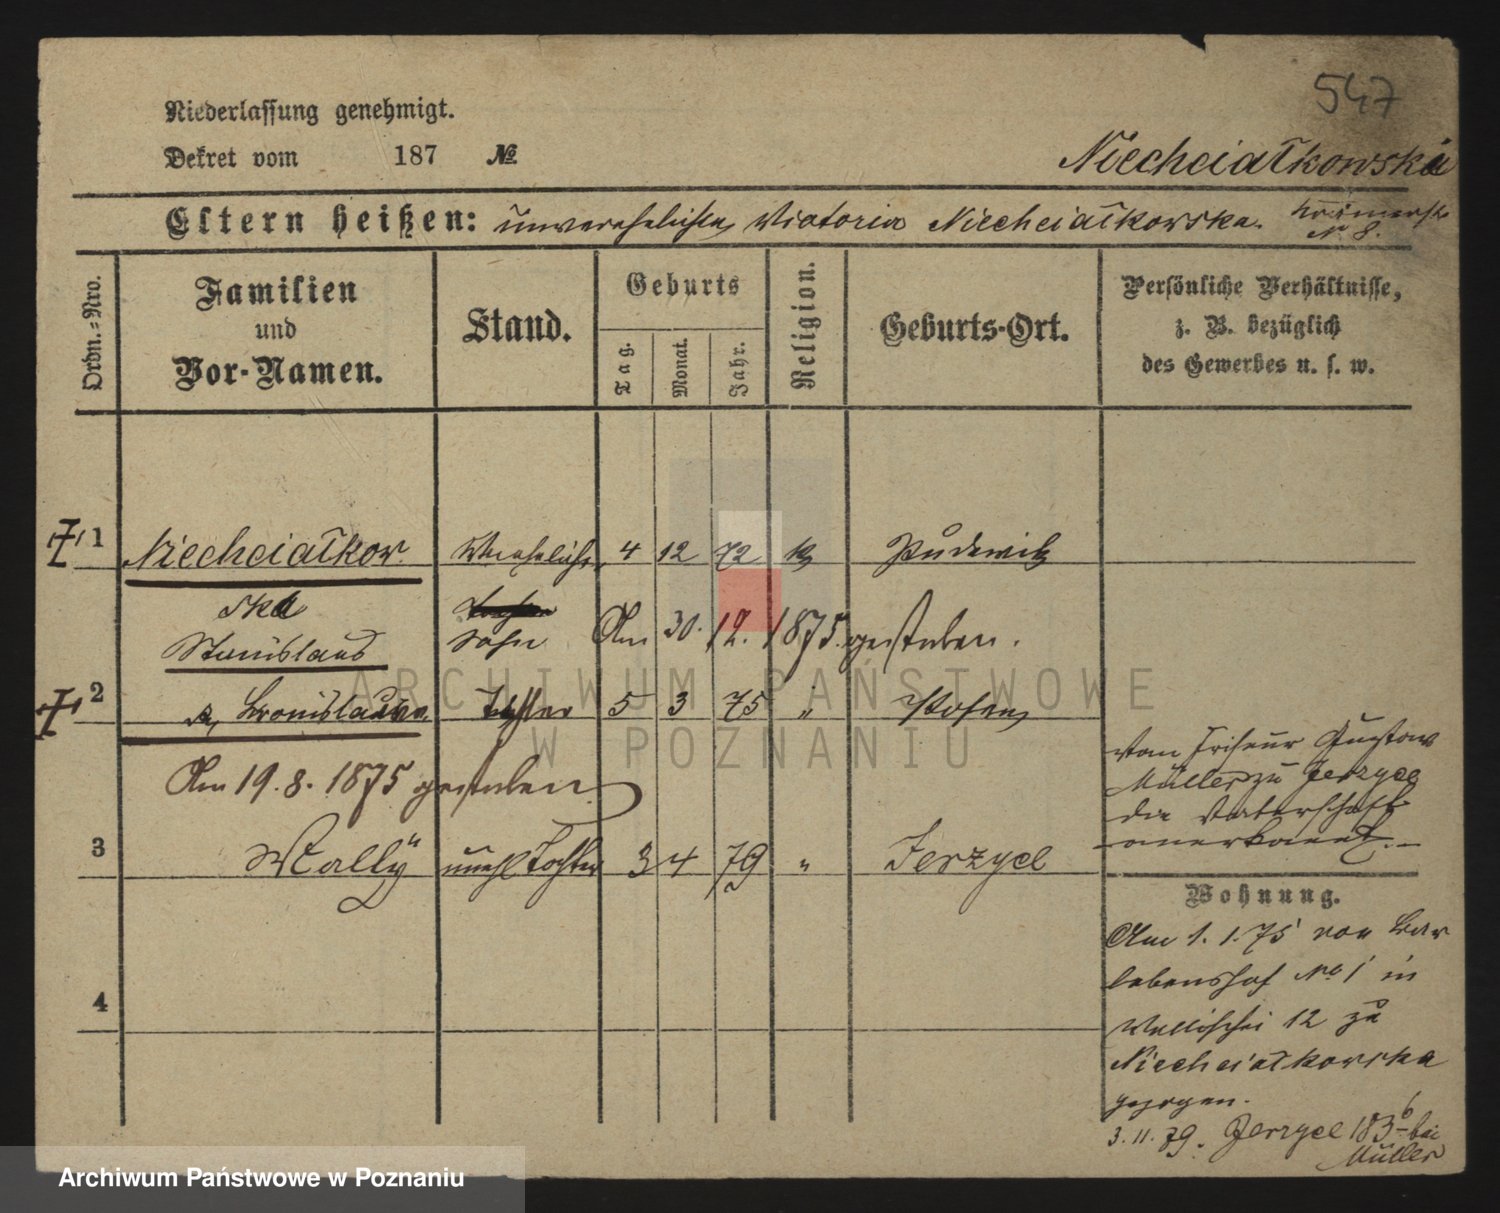 547
Niederlassung genehmigt.
Dekret vom 187 №
Niechciałkowska
Eltern heißen: unverehelichte Victoria Niechciałkowska.
N. 8.
Ordn.-Nro.
Familien
und
Vor-Namen.
Stand.
Geburts
Tag.
Monat.
Jahr.
Religion.
Geburts-Ort.
Persönliche Verhältnisse,
z. B. bezüglich
des Gewerbes u. s. w.
1 Niechciałkow. 4 12 72 k Pudewitz
ska
Stanislaus Sohn Am 30. 12. 1875 gestorben.
2 Bronislawa Tochter 5 3 75 " Posen
Am 19. 8. 1875 gestorben
Vom Friseur Gustav
Müller zu Jerzyce
die Vaterschaft
anerkannt.
3 Wally unehl Tochter 3 4 79 " Jerzyce
4
Wohnung.
Am 1. 1. 75 von Bar
lebenshof No 1 in
Wallischei 12 zu
Niechciałkowska
gezogen.
3. 11. 79. Jerzyce 183 b bei
Müller
ARCHIWUM PAŃSTWOWE
W POZNANIU
Archiwum Państwowe w Poznaniu